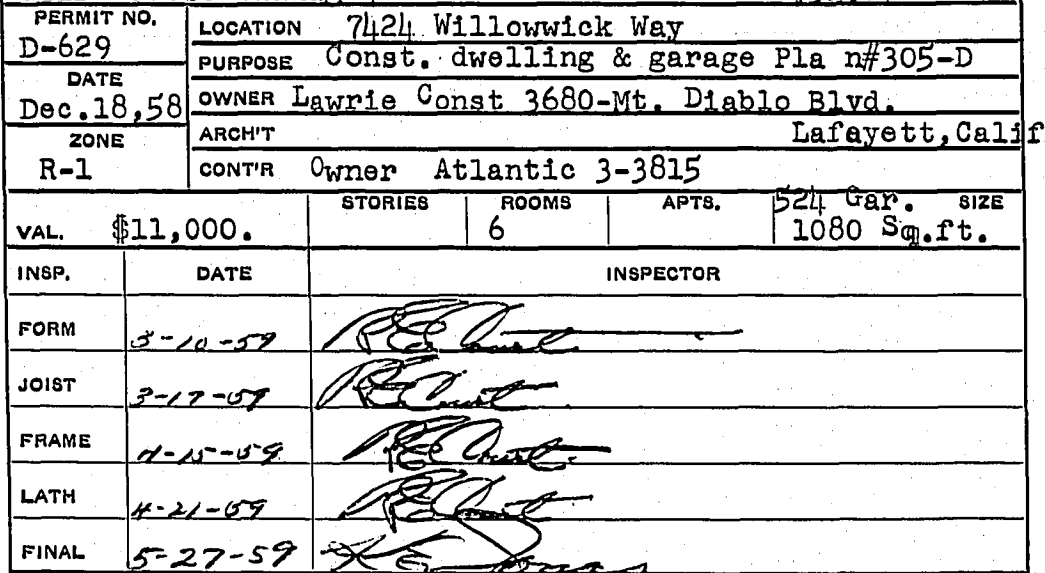 PERMIT NO. D-629
LOCATION 7424 Willowwick Way
PURPOSE Const. dwelling & garage Pla n#305-D
DATE Dec.18,58
OWNER Lawrie Const 3680-Mt. Diablo Blvd.
ZONE R-1
ARCH'T Lafayett,Calif
CONT'R Owner Atlantic 3-3815
STORIES ROOMS APTS. 524 Gar. SIZE
VAL. $11,000. 6 1080 Sq.ft.
INSP. DATE INSPECTOR
FORM 3-10-59
JOIST 3-17-59
FRAME 4-15-59
LATH 4-21-59
FINAL 5-27-59